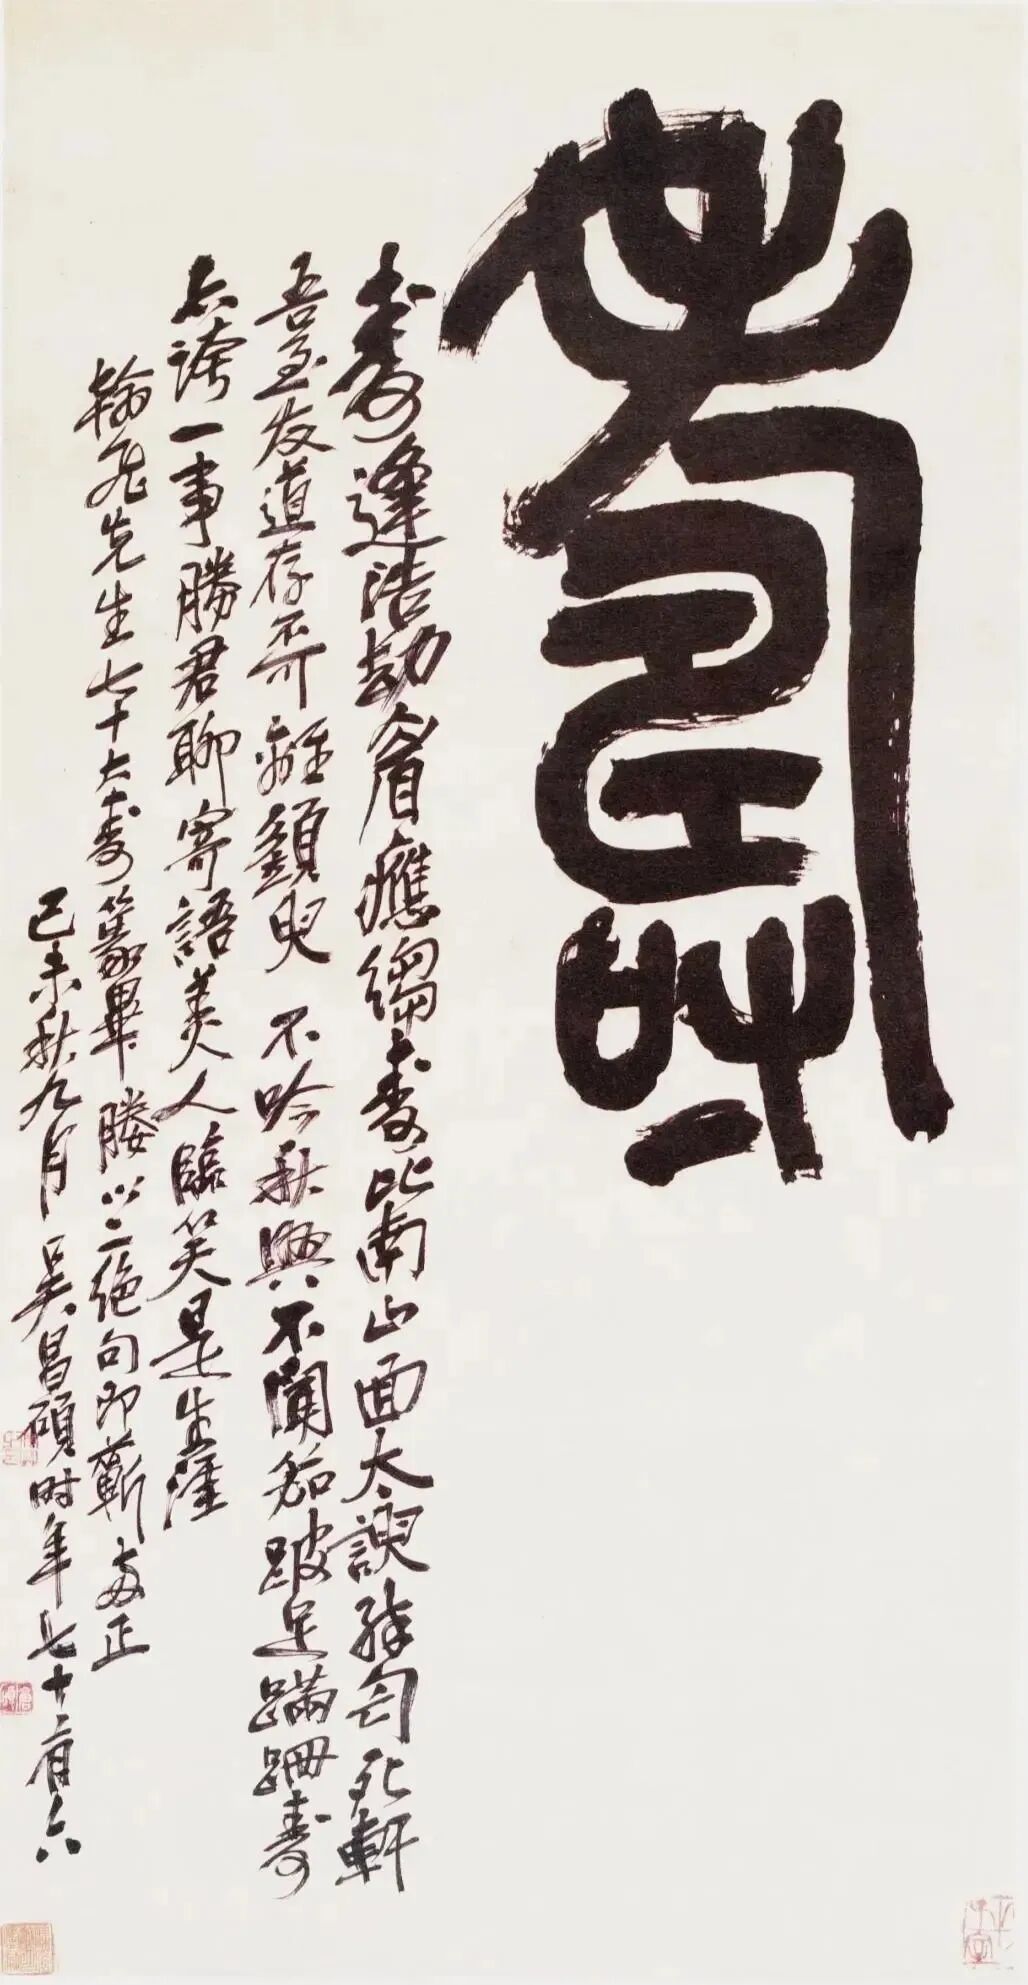 壽
壽逢浩劫眉應縐壽比南山面太諛匄軒
吾至友道存不可離須臾 不吟秋興不聞笳跛足蹣跚壽
亦誇一事勝君聊寄語美人臨笑是生涯
翰先生七十六壽篆畢媵以二絕句即蘄正
己未秋九月吳昌碩時年七十有六